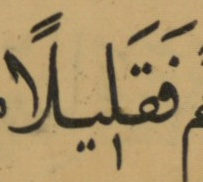 فَقَلِيلًا